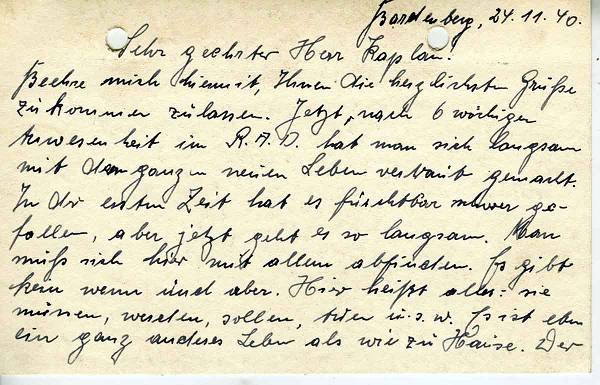 Bardenberg, 24.11.40.
Sehr geehrter Herr Kaplan!
Beehre mich hiermit, Ihnen die herzlichsten Grüße
zukommen zulassen. Jetzt, nach 6 wöchigen
Anwesenheit im R.A.D. hat man sich langsam
mit dem ganzen neuen Leben vertraut gemacht.
In der ersten Zeit hat es furchtbar schwer ge-
fallen, aber jetzt geht es so langsam. Man
muß sich hier mit allem abfinden. Es gibt
kein wenn und aber. Hier heißt alles: sie
müssen, werden, sollen, tuen u.s.w. Es ist eben
ein ganz anderes Leben als wie zu Hause. Der